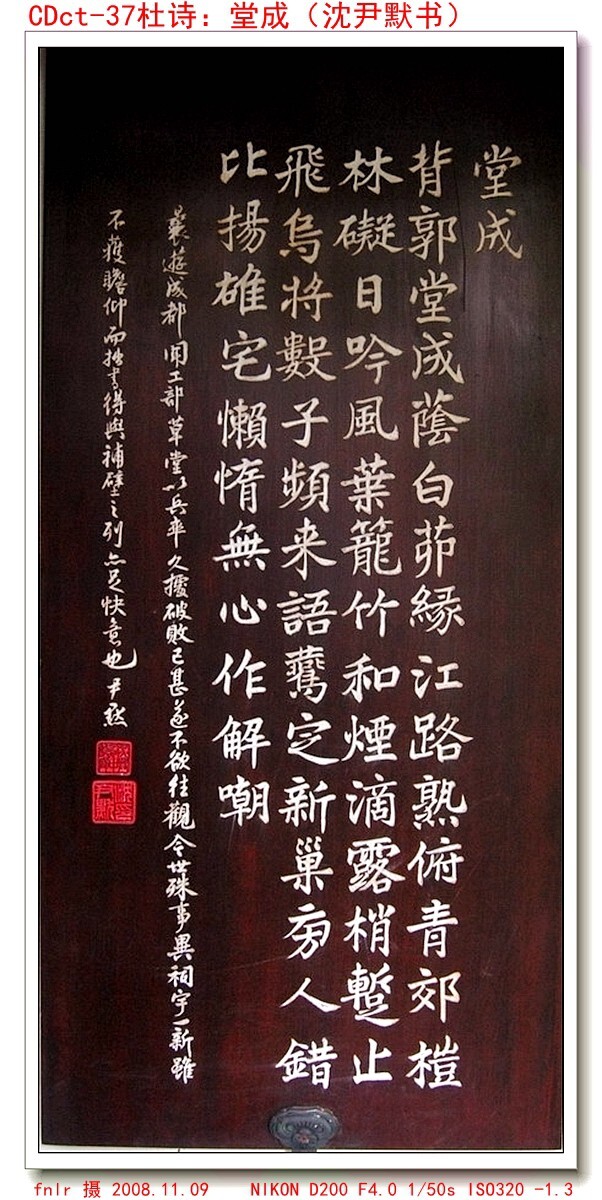 CDct-37杜诗：堂成（沈尹默书）
堂成
背郭堂成蔭白茆緣江路熟俯青郊榿
林礙日吟風葉籠竹和煙滴露梢蹔止
飛烏將數子頻来語鷰定新巢旁人錯
比揚雄宅懶惰無心作解嘲
曩遊成都聞工部草堂以兵卒久擾破敗已甚遂不欲往觀今世殊事異祠宇一新雖
不獲瞻仰而拙書得與補壁之列亦足快意也尹默
fnlr 摄 2008.11.09 NIKON D200 F4.0 1/50s ISO320 -1.3